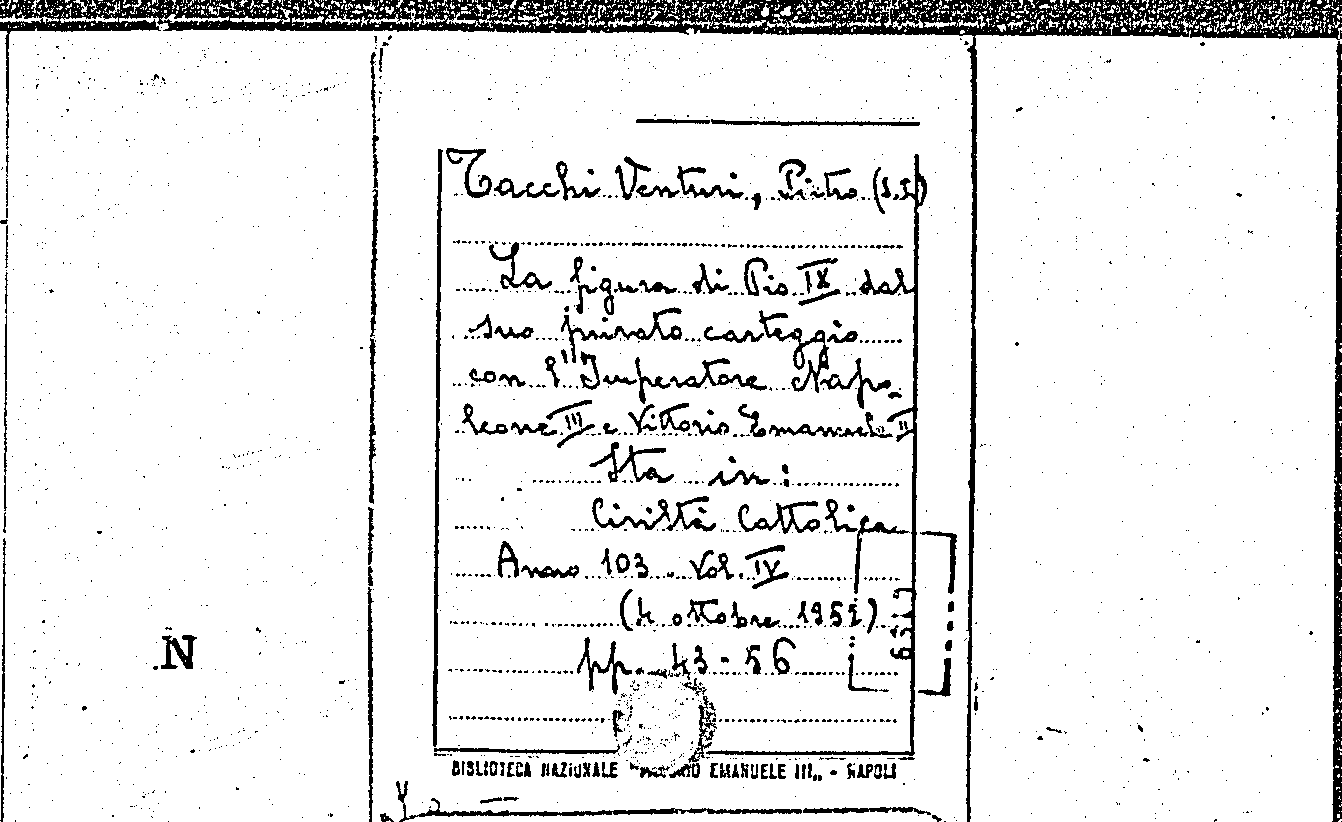 Tacchi Venturi, Pietro (S.I.)
La figura di Pio IX dal
suo privato carteggio
con l'Imperatore Napo-
leone III e Vittorio Emanuele II
Sta in:
Civiltà Cattolica
Anno 103. Vol. IV
(4 ottobre 1952)
pp. 43-56
N
BIBLIOTECA NAZIONALE "VITTORIO EMANUELE III„ - NAPOLI